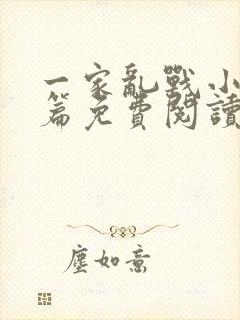 一家亂戰小
篇免費閱讀
塵如意